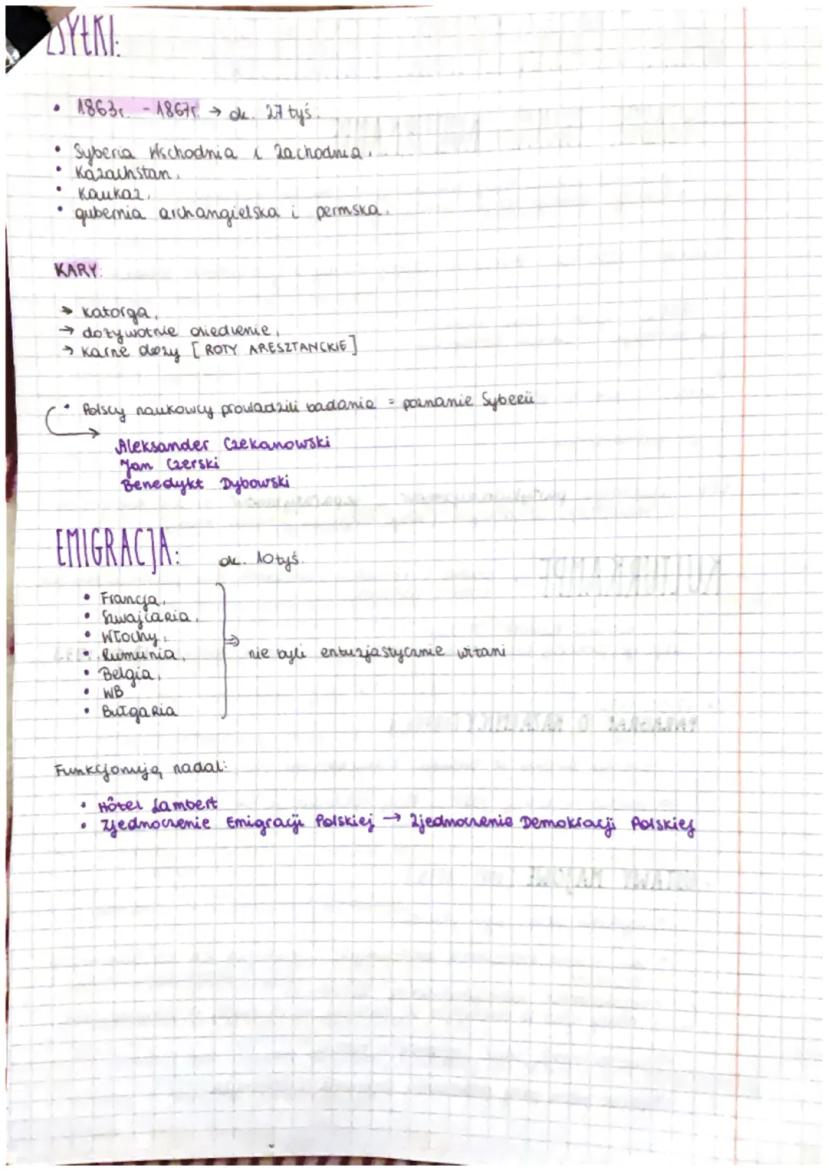 ZSYŁKI:
• 1863r. - 1867r. → ok. 27 tyś.
• Syberia Wschodnia i Zachodnia,
• Kazachstan,
• Kaukaz,
• gubernia archangielska i permska.
KARY:
→ katorga,
→ dożywotnie osiedlenie,
→ karne obozy [ROTY ARESZTANCKIE]
• Polscy naukowcy prowadzili badania = poznanie Syberii
Aleksander Czekanowski
Jan Czerski
Benedykt Dybowski
EMIGRACJA: ok. 10 tyś.
• Francja,
• Szwajcaria,
• Włochy,
• Rumunia,
• Belgia,
• WB
• Bułgaria
⇒ nie byli entuzjastycznie witani
Funkcjonują nadal:
• Hôtel Lambert
• Zjednoczenie Emigracji Polskiej → Zjednoczenie Demokracji Polskiej